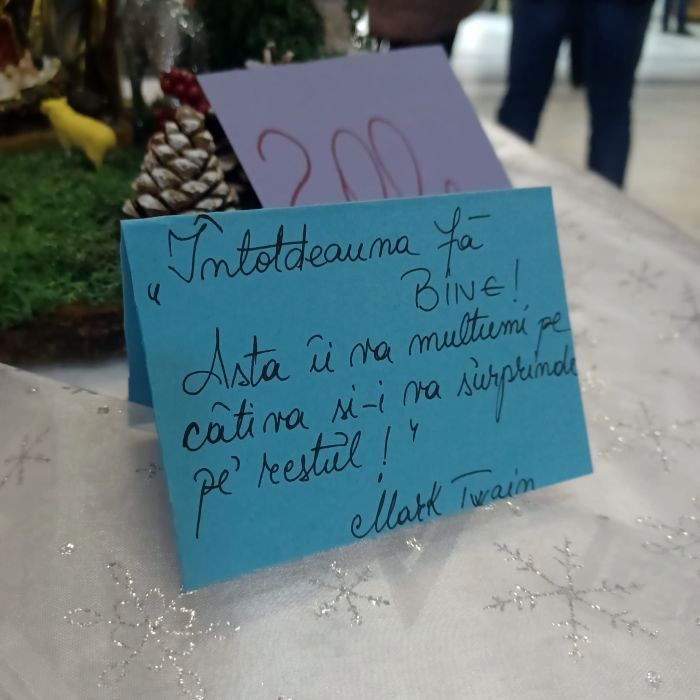 „Întotdeauna fă
BINE!
Asta îi va multumi pe
câtiva si-i va surprinde
pe restul!"
Mark Twain